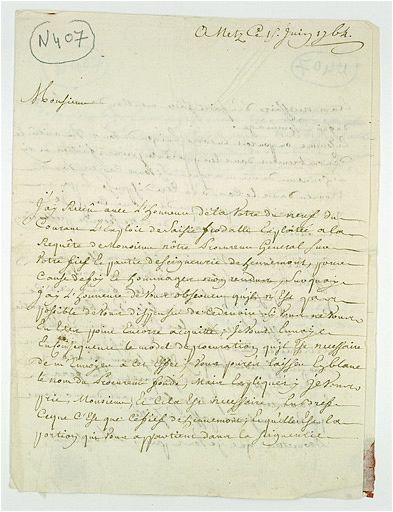 N407
A Metz Ce 15 Juin 1764.
Monsieur
J'ay Reçu avec L'honneur de la Votre du neuf du
Courant L'Exploit de Saisie feodalle Exploitté a la
Requete de Monsieur nôtre Procureur General sur
Votre fief Et partie de seigneurie de hennemont, pour
cause de foi Et hommages non rendus, Surquoy
J'ay L'honneur de Vous observer qu'il n'Est pas
possible de Vous dispenser de ce devoir Si Vous ne Vous
En Etes point Encorre acquitté; Je Vous Envoye
En Consequence le model de procuration qu'il Est necessaire
de m'Envoyer a cet Effet; Vous pourez laisser En blanc
le nom du Procureur fondé, Mais Expliquer; Je Vous
prie, Monsieur, Et Cela Est necessaire
Ceque C'Est que ce fief de hennemont, Et quelle Est la
portion qui Vous appartient dans la Seigneurie